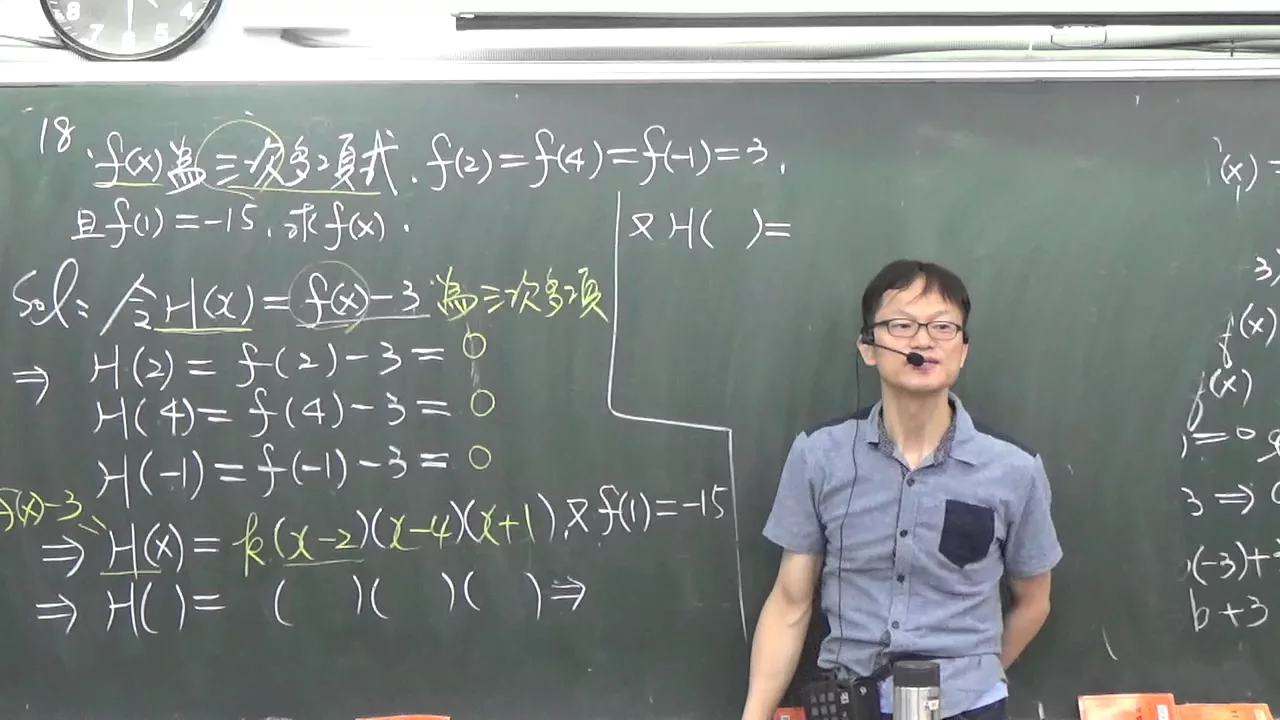 18. f(x)為三次多項式, f(2)=f(4)=f(-1)=3,
且f(1)=-15, 求f(x).
Sol: 令H(x)=f(x)-3 為三次多項
⇒ H(2)=f(2)-3=0
H(4)=f(4)-3=0
H(-1)=f(-1)-3=0
f(x)-3
⇒ H(x)=k(x-2)(x-4)(x+1), 又f(1)=-15
⇒ H( )= ( )( )( ) ⇒
又H( )=
(x)=
3)
f(x)
f(x)
)=0
3 ⇒
(-3)+
b+3
8 7 6 5 4